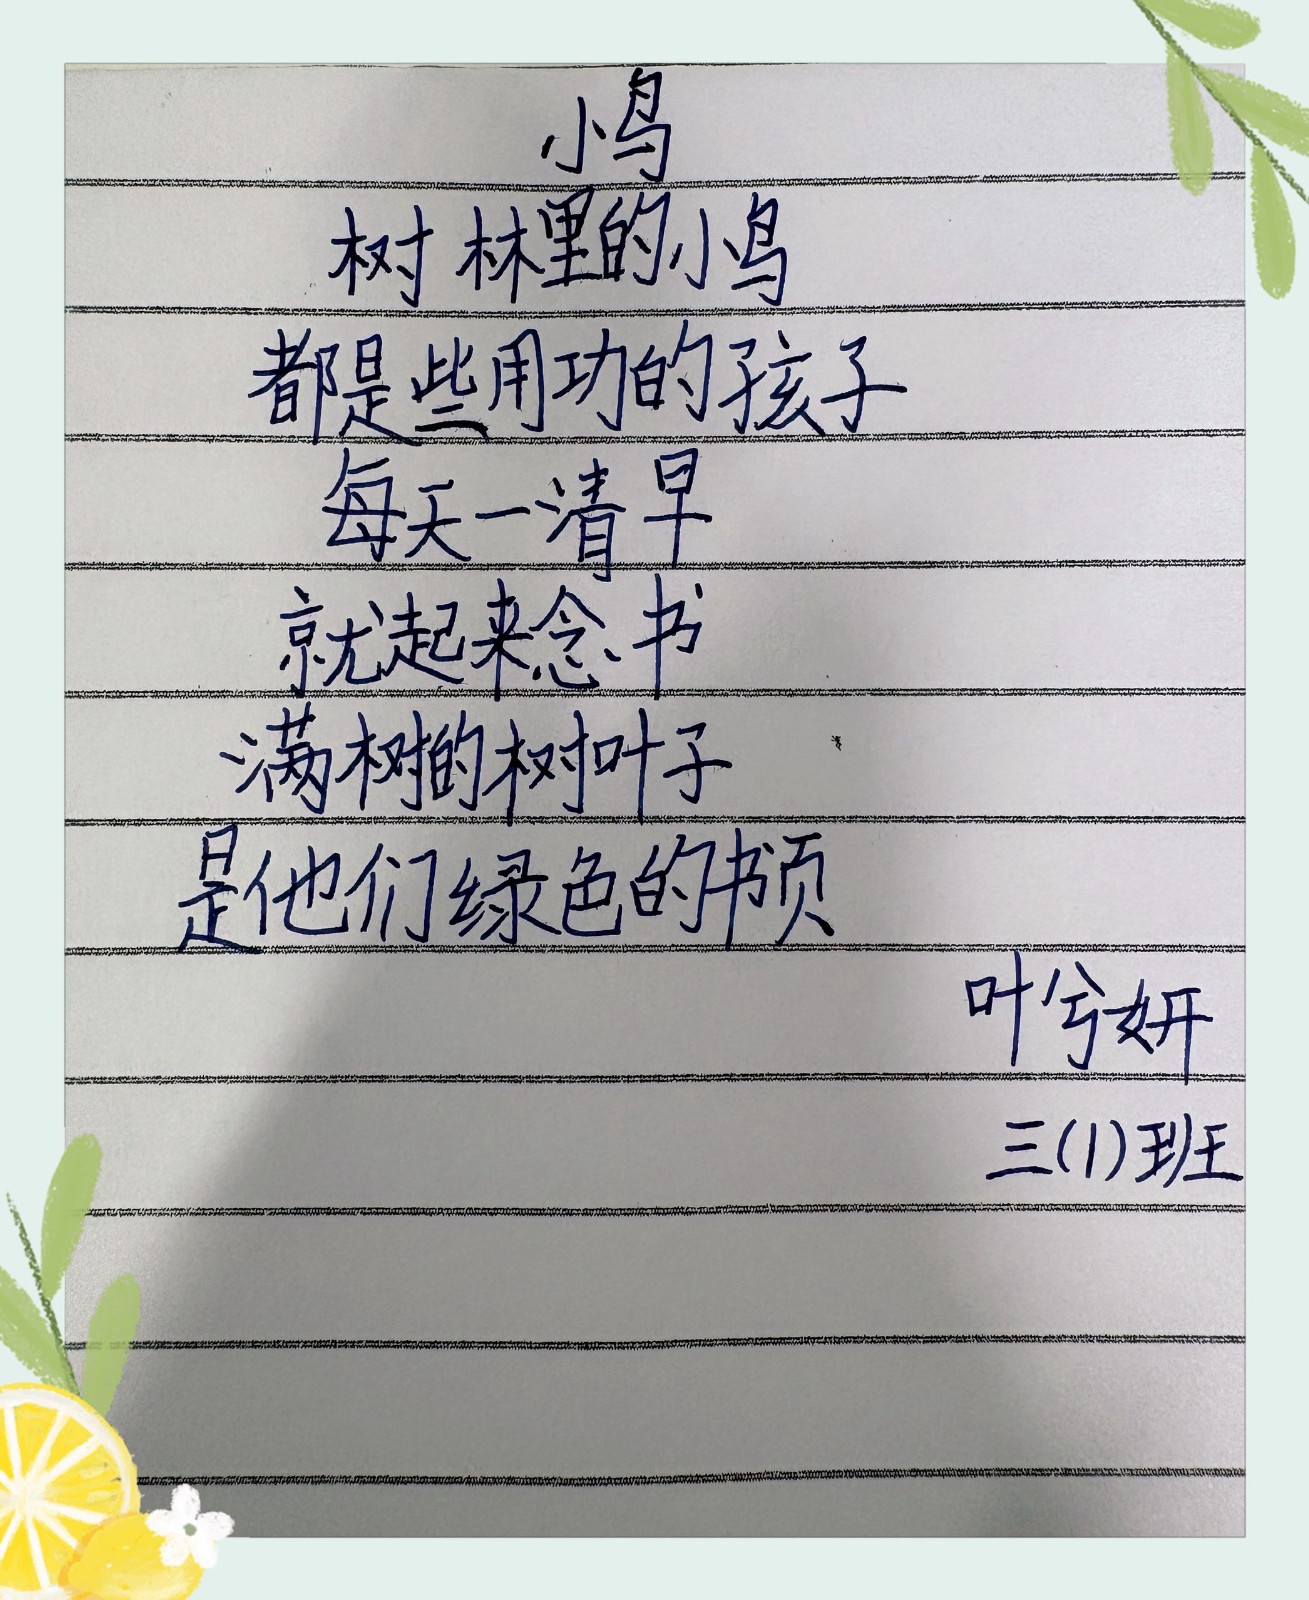 小鸟
树林里的小鸟
都是些用功的孩子
每天一清早
就起来念书
满树的树叶子
是他们绿色的书页
叶兮妍
三(1)班